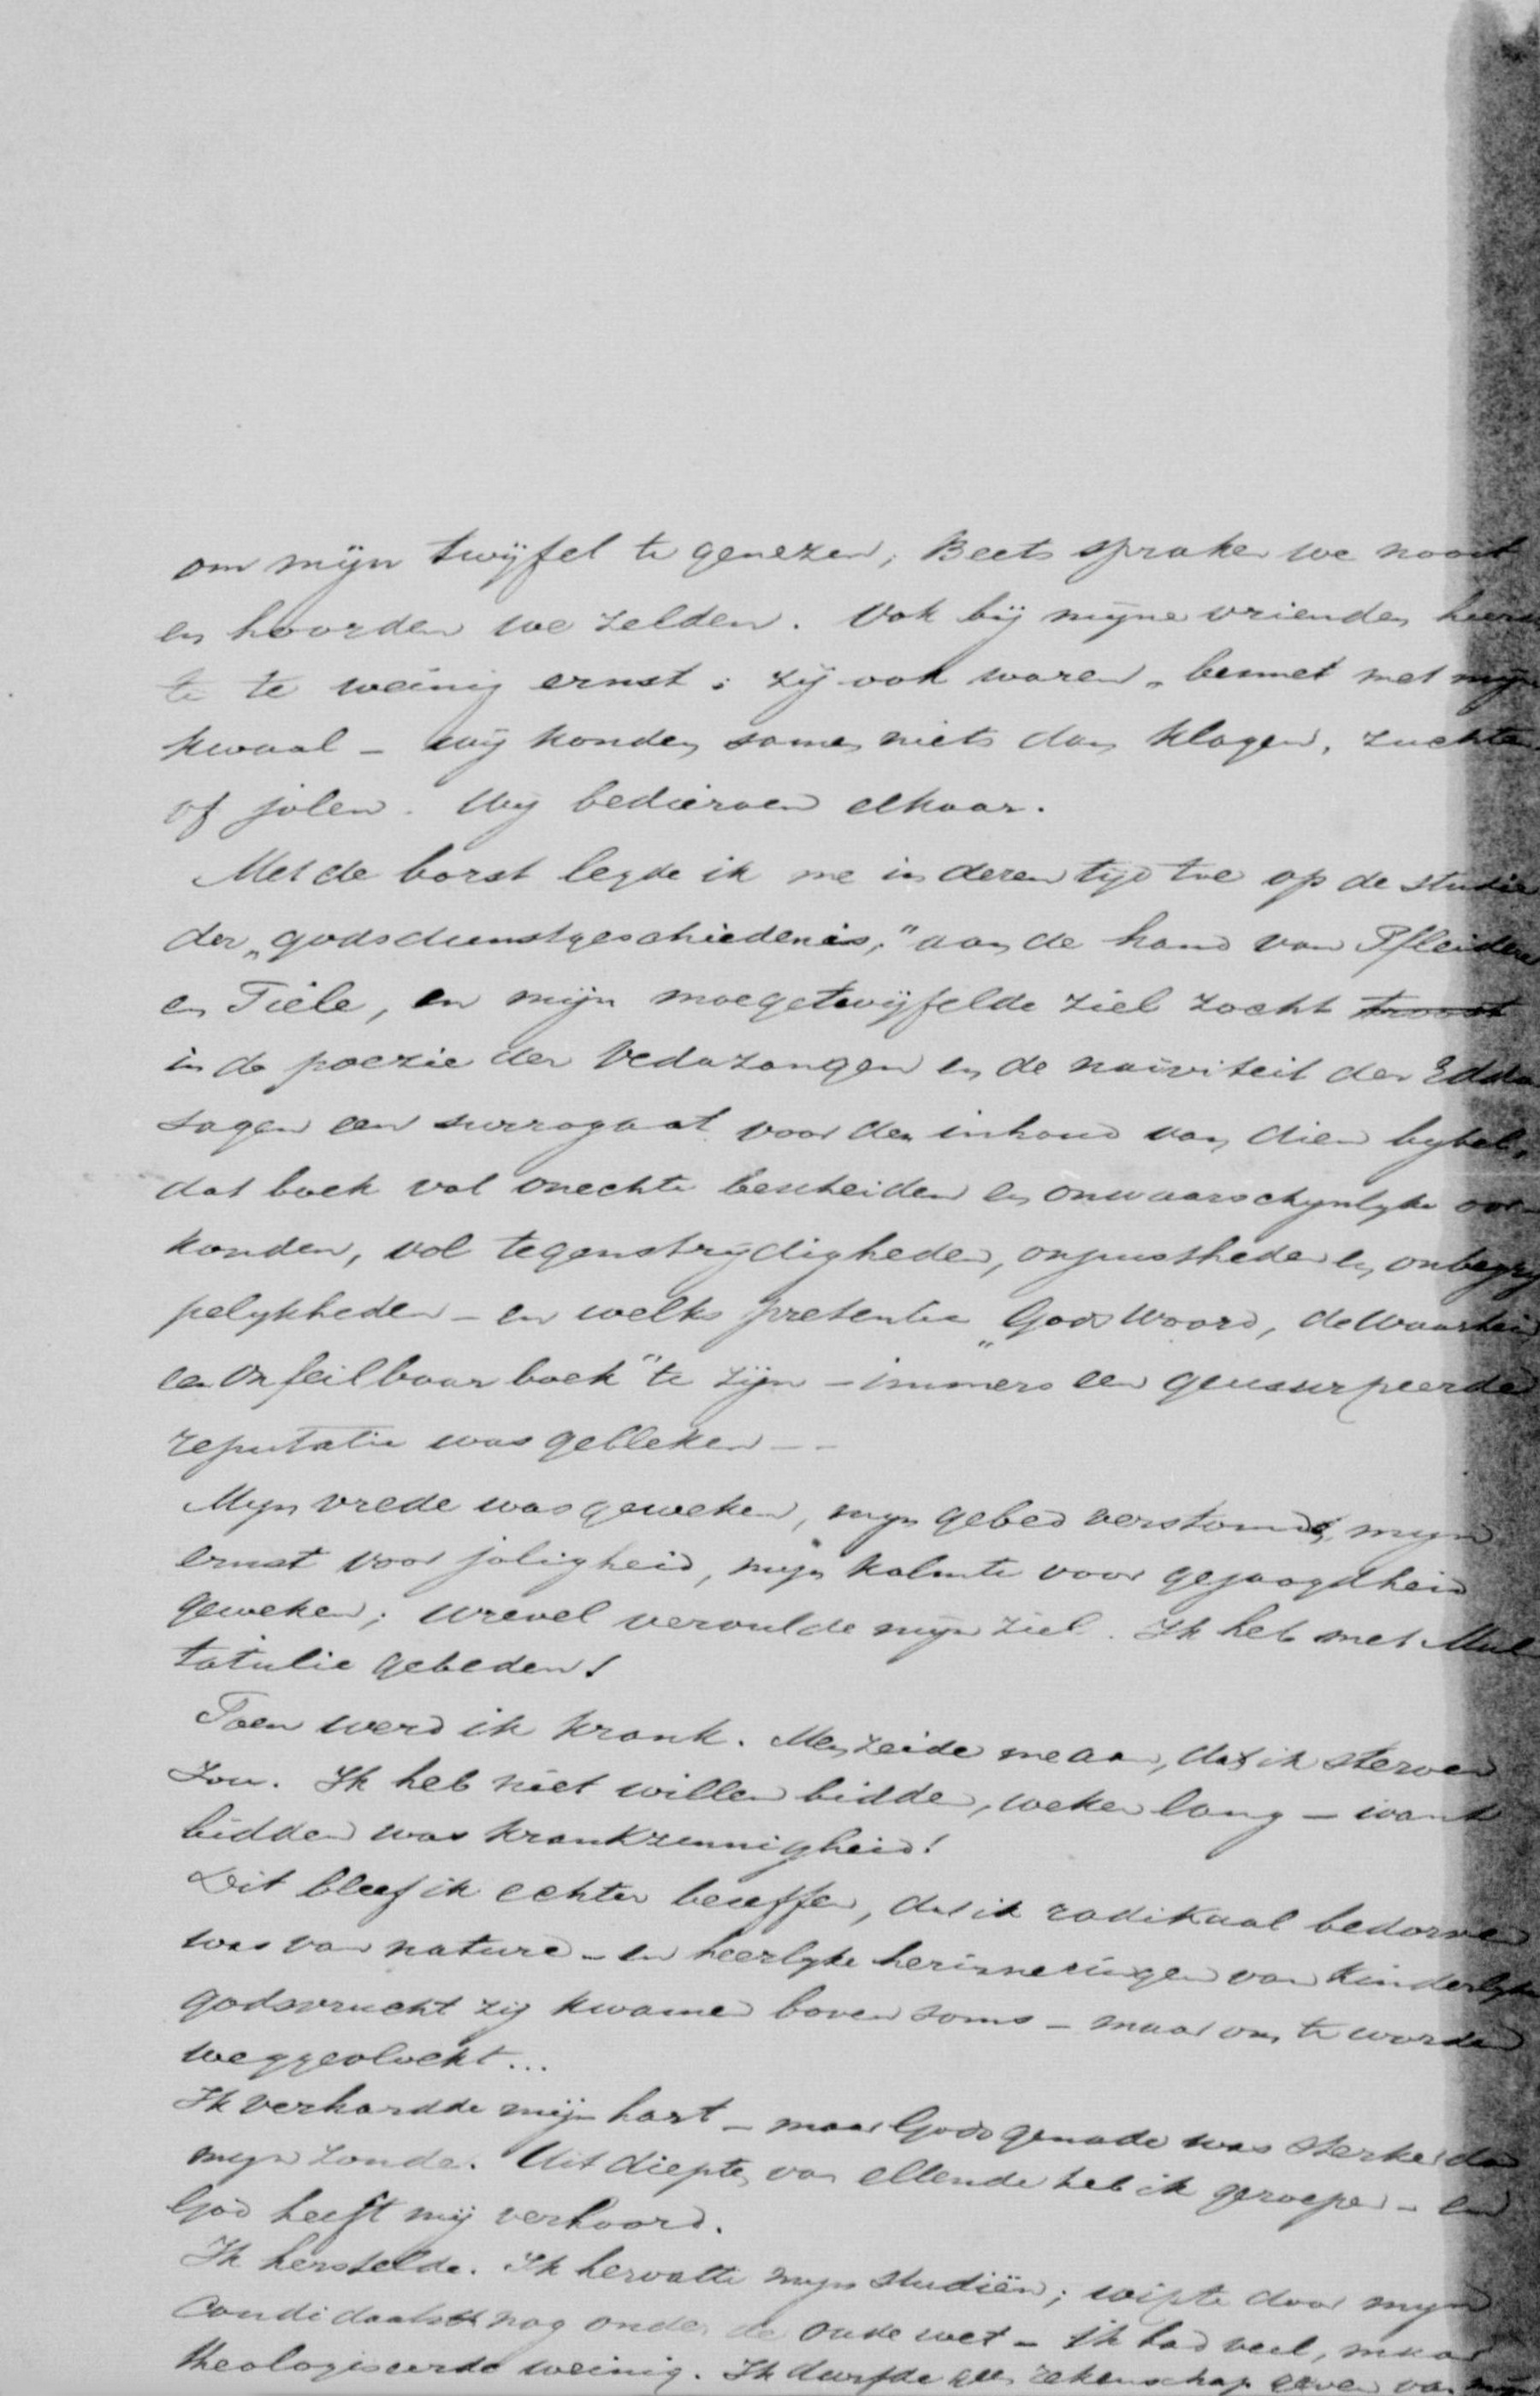 om mijn twijfel te genezen; Beets spraken we nooit
en hoorden we zelden. Ook bij mijne vrienden heersch
te te weinig ernst; zij ook waren besmet met mijn
kwaal – wij konden samen niets dan klagen, zuchten
of jolen. Wij bedierven elkaar.
Met de borst legde ik me in deren tijd toe op de studie
der „godsdienstgeschiedenis," aan de hand van Pfleiderer
en Tiele, en mijn moegetwijfelde ziel zocht troost
in de poezie der Vedazangen en de naïviteit der Edda
sagen een surrogaat voor den inhoud van dien bybel,
dat boek vol onechte bescheiden en onwaarschynlyke oor-
konden, vol tegenstrijdigheden, onjuistheden en onbegry
pelykheden – en welks pretentie „Gods Woord, de Waarheid
een onfeilbaar boek" te zijn – immers een geusurpeerde
reputatie was gebleken –
Myn vrede was geweken, myn gebed verstomd, myn
ernst voor joligheid, mijn kalmte voor gejaagdheid
geweken; wrevel vervulde mijn ziel. Ik heb met Mul
tatulie gebeden!
Toen werd ik krank. Men zeide me aan, dat ik sterven
zou. Ik heb niet willen bidden, weken lang – want
bidden was krankzinnigheid!
Dit bleef ik echter beseffen, dat ik radikaal bedorven
was van nature – en heerlyke herinneringen van kinderlyke
godsvrucht zij kwamen boven soms – maar om te worden
weggevloekt...
Ik verhardde mijn hart – maar Gods genade was sterker dan
myn zonde. Uit diepten van ellende heb ik geroepen – en
God heeft mij verhoord.
Ik herstelde. Ik hervatte myn studiën; wipte door myn
Candidaats nog onder de oude wet – ik las veel, maar
theologiseerde weinig. Ik durfde geen rekenschap geven van mijn